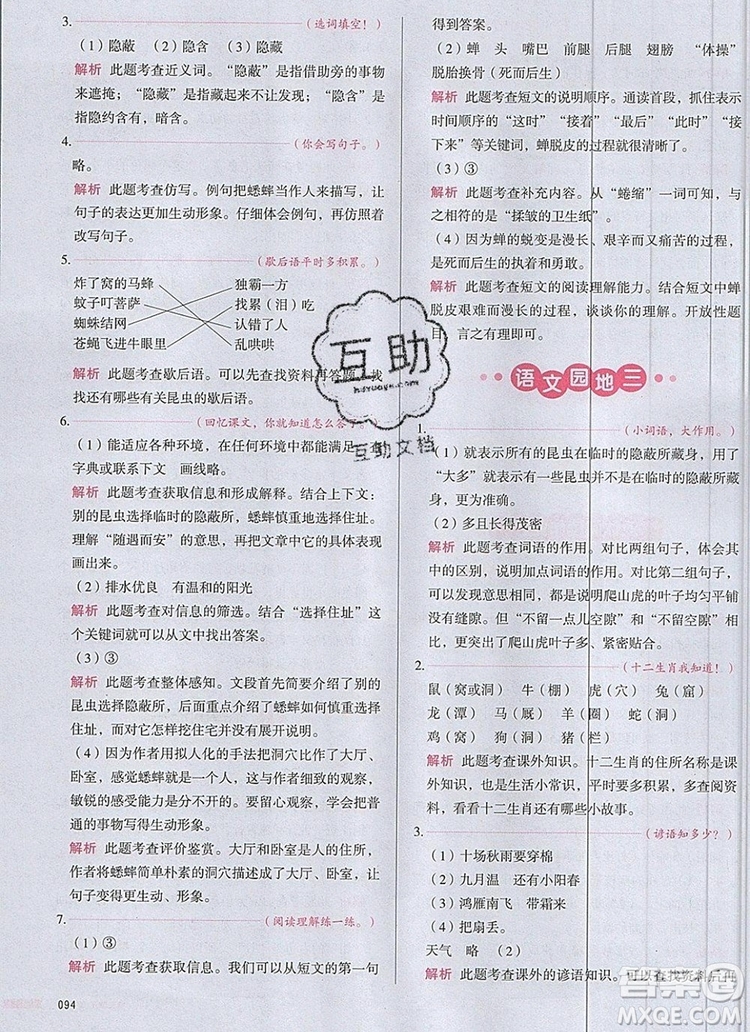 3.（选词填空！）
（1）隐蔽 （2）隐含 （3）隐藏
解析 此题考查近义词。“隐蔽”是指借助旁的事物
来遮掩；“隐藏”是指藏起来不让发现；“隐含”是
指隐约含有，暗含。
4.（你会写句子。）
略。
解析 此题考查仿写。例句把蟋蟀当作人来描写，让
句子的表达更加生动形象。仔细体会例句，再仿照着
改写句子。
5.（歇后语平时多积累。）
炸了窝的马蜂 独霸一方
蚊子叮菩萨 找累（泪）吃
蜘蛛结网 认错了人
苍蝇飞进牛眼里 乱哄哄
解析 此题考查歇后语。可以先查找资料再答题，找
找还有哪些有关昆虫的歇后语。
6.（回忆课文，你就知道怎么答了。）
（1）能适应各种环境，在任何环境中都能满足。
字典或联系上下文 画线略。
解析 此题考查获取信息和形成解释。结合上下文：
别的昆虫选择临时的隐蔽所，蟋蟀慎重地选择住址。
理解“随遇而安”的意思，再从文章中找出关键句
画出来。
（2）排水优良 有温和的阳光
解析 此题考查对信息的筛选。结合“选择住址”这
个关键词就可以从文中找出答案。
（3）③
解析 此题考查整体感知。文段首先简要介绍了别的
昆虫选择隐蔽所，后面重点介绍了蟋蟀如何慎重选择
住址，而对它怎样挖住宅没有展开说明。
（4）因为作者用拟人化的手法把洞穴比作了大厅、
卧室，感觉蟋蟀也与人一样，这与作者细致的观察，
敏锐的感受能力是分不开的。要留心观察，才能把普
通的事物写生动形象。
解析 此题考查评价鉴赏。大厅和卧室是人的住所，
作者将蟋蟀简单朴素的洞穴比作人的大厅与卧室，让
句子变得更生动、形象。
7.（阅读理解练一练。）
（1）③
解析 此题考查获取信息。我们可以从短文的第一句
094
得到答案。
（2）蝉 头 嘴巴 前腿 后腿 翅膀 “体操”
脱胎换骨（死而后生）
解析 此题考查短文的说明顺序。通读首段，抓住表示
时间顺序的“这时”“接着”“最后”“此时”“接
下来”等关键词，蝉脱皮的过程就很清晰了。
（3）③
解析 此题考查补充内容。从“蜷缩”一词可知，与
之相符的是“揉皱的卫生纸”。
（4）因为蝉的蜕变是漫长、艰辛而又痛苦的过程，
是死而后生的执着和勇气。
解析 此题考查短文的阅读理解能力。结合短文中蝉
脱皮艰难而漫长的过程，谈谈你的理解。开放性题
目，言之有理即可。
语文园地三
1.（小词语，大作用。）
（1）就表示所有的昆虫在临时的隐蔽所藏身，用了
“大多”就表示有的昆虫在临时的隐蔽所藏身，更
准确。
（2）多且长得茂密
解析 此题考查词语的作用。对比两组句子，体会其
中的区别，说说自己的发现。对比第二组句子，我们
可以发现意思相近，但是说明爬山虎的叶子均匀平铺
没有缝隙。但“不留一点儿空隙”和“不留一点缝
隙”更突出了爬山虎叶子多、长得茂密的特点。
2.（十二生肖我知道！）
鼠（窝或洞） 牛（棚） 虎（穴） 兔（窟）
龙（潭） 马（厩） 羊（圈） 蛇（洞）
鸡（窝） 狗（窝） 猪（圈）
解析 此题考查课外知识。十二生肖的住所名称是课
外知识，也是生活小常识，平时要多积累，多查阅资
料，看看十二生肖还有哪些小故事。
3.（谚语知多少？）
（1）十场秋雨要穿棉
（2）九月温 还有小阳春
（3）鸿雁南飞 带霜来
（4）把扇丢。
天气 略 （2）
解析 此题考查课外的谚语知识。可以查找资料后再
互助
hdzuoye.com
互助文档
答案圈
MXQE.COM